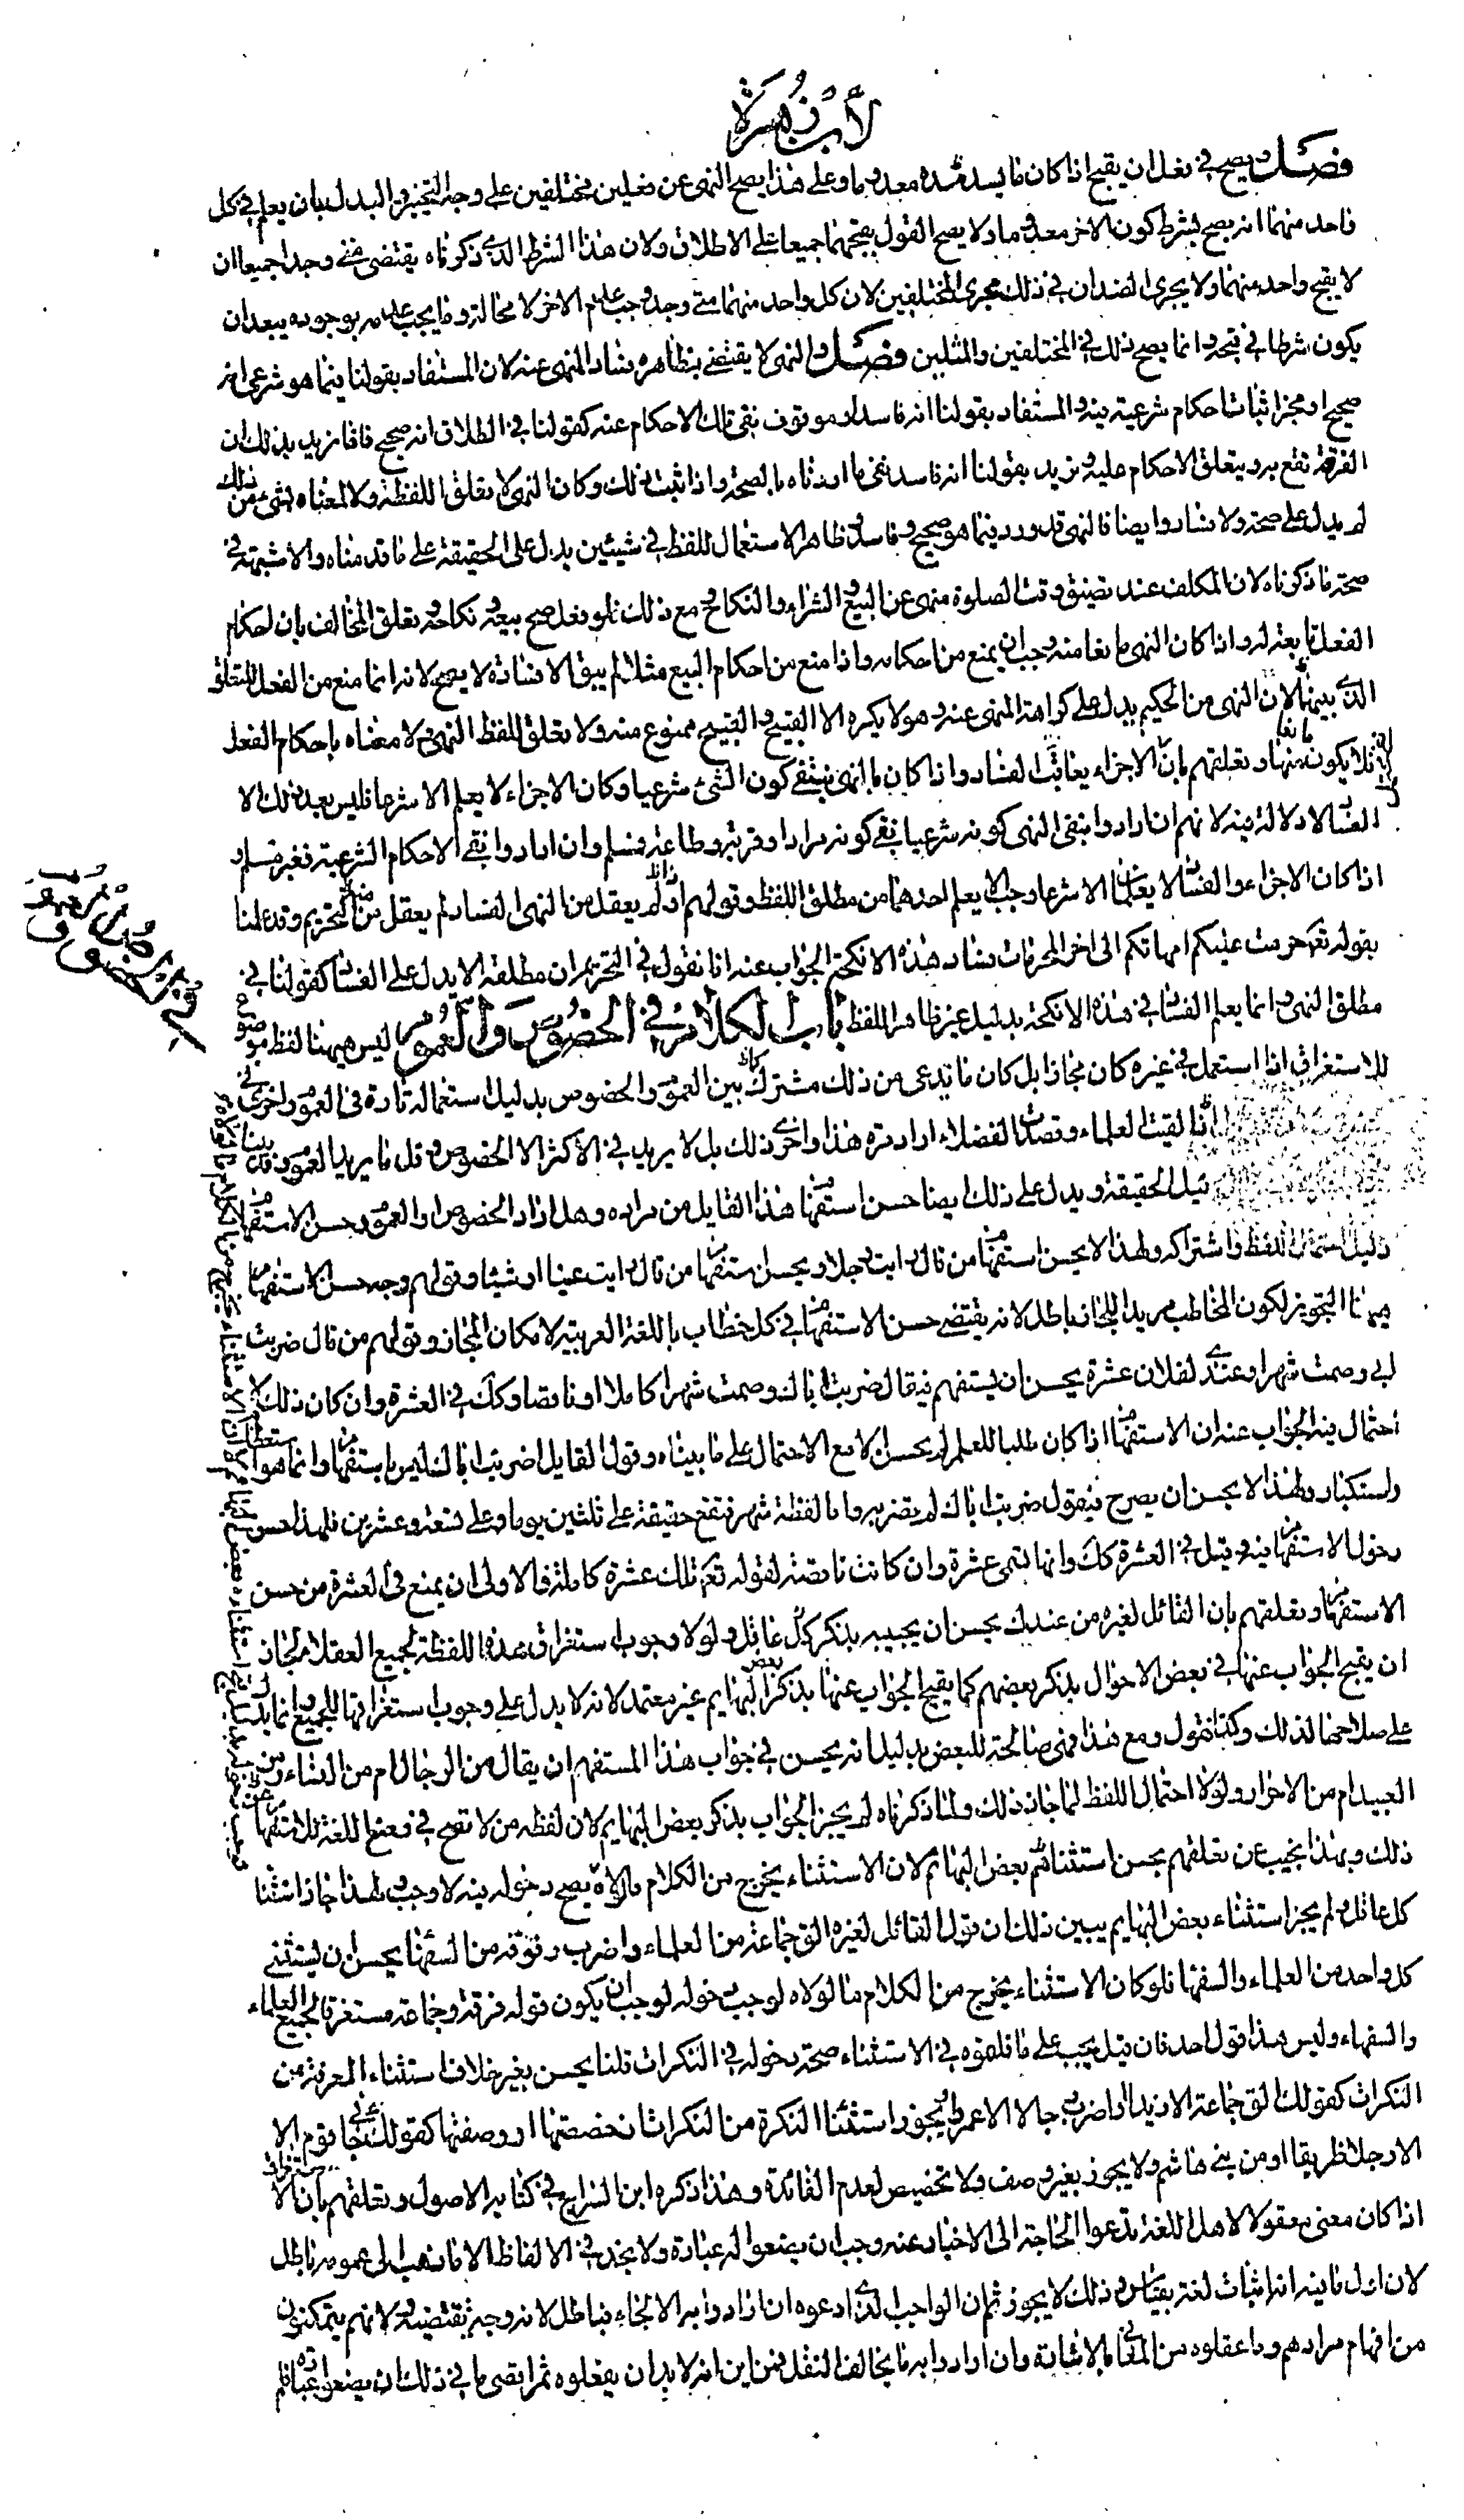 لابن زهرة
فصل ويصح في فعل ان يقبح اذا كان ما يسد مسده معدوما وعلى هذا يصح النهى عن فعلين مختلفين على وجه التخيير والبدل بان يعلم في كل
واحد منهما انه يصح بشرط كون الاخر معدوما ولا يصح القول بقبحهما جميعا على الاطلاق ولان هذا الشرط الذي ذكرناه يقتضى متى وجدا جميعا ان
لا يقبح واحد منهما ولا يجرى الضدان في ذلك مجرى المختلفين لان كل واحد منهما متى وجد وجب عدم الاخر لا محالة وما يجب عدمه بوجوده يبعد ان
يكون شرطا في قبحه وانما يصح ذلك في المختلفين والمثلين فصل والنهى لا يقتضى بظاهره فساد المنهى عنه لان المستفاد بقولنا فيما هو شرعى انه
صحيح او مجز اثبات احكام شرعية فيه والمستفاد بقولنا انه فاسد او موقوف نفى تلك الاحكام عنه كقولنا في الطلاق انه صحيح فانا نريد بذلك ان
الفرقة تقع به ويتعلق الاحكام عليه ونريد بقولنا انه فاسد نفى ما اردناه بالصحة واذا ثبت ذلك وكان النهى لا تعلق للفظه ولا لمعناه بشئ من ذلك
لم يدل على صحة ولا فساد وايضا فالنهى قد ورد فيما هو صحيح وفاسد وظاهر الاستعمال للفظ في شيئين يدل على الحقيقة على ما قدمناه والا شبهة في
صحة ما ذكرناه لان المكلف عند تضيق وقت الصلوة منهى عن البيع والشراء والنكاح ومع ذلك فلو فعل صح بيعه ونكاحه وتعلق المخالف بان احكام
الفعل تابعة له واذا كان النهى مانعا منه وجب ان يمنع من احكامه واذا منع من احكام البيع مثلا لم يبق الا فساده لا يصح لانه انما منع من الفعل للتعلق
الذي بينهما لان النهى من الحكيم يدل على كراهة المنهى عنه وهو لا يكره الا القبيح والقبيح ممنوع منه ولا تعلق للفظ النهى ولا معناه باحكام الفعل
فلا يكون مانعا منها وتعلقهم بان الاجزاء يعاقب الفساد واذا كان بالنهى ينتفى كون الشئ شرعيا وكان الاجزاء لا يعلم الا شرعا فليس بعد ذلك الا
الفساد لا دلالة فيه لانهم ان ارادوا بنفى النهى كونه شرعيا نفى كونه مرادا وقربة وطاعة فمسلم وان ارادوا نفى الاحكام الشرعية فغير مسلم و
اذا كان الاجزاء والفساد لا يعلمان الا شرعا وجب الا يعلم احدهما من مطلق اللفظ وقولهم اذا لم يعقل من النهى الفساد لم يعقل من التحريم وقد علمنا
بقوله تعالى حرمت عليكم امهاتكم الى اخر المحرمات فساد هذه الانكحة الجواب عنه انا نقول في التحريم ان مطلقه لا يدل على الفساد كقولنا في
مطلق النهى وانما يعلم الفساد في هذه الانكحة بدليل غير ظاهر اللفظ باب الكلام في الخصوص والعموم ليس ههنا لفظ موضوع
للاستغراق اذا استعمل في غيره كان مجازا بل كان ما تدعى من ذلك مشترك بين العموم والخصوص بدليل استعماله تارة في العموم واخرى في
لقيت العلماء وقصدت الفضلاء اراد تارة هذا واخرى ذلك بل لا يريد في الاكثر الا الخصوص وقل ما يريد العموم وقد بينا
دليل الحقيقة ويدل على ذلك ايضا حسن استفهام هذا القايل من مراده وهل اراد الخصوص او العموم وحسن الاستفهام
دليل احتمال اللفظ واشتراكه ولهذا لا يحسن استفهام من قال رايت رجلا ويحسن استفهام من قال رايت عينا او شيئا وقولهم وجه حسن الاستفهام
ههنا التجويز لكون المخاطب مريدا للمجاز باطل لانه يقتضى حسن الاستفهام في كل خطاب باللغة العربية لامكان المجاز وقولهم من قال ضربت
ابى وصمت شهرا وعندى لفلان عشرة يحسن ان يستفهم فيقال ضربت اباك وصمت شهرا كاملا او ناقصا وكذلك في العشرة وان كان ذلك لا
احتمال فيه الجواب عنه ان الاستفهام اذا كان طلبا للعلم لم يحسن الا مع الاحتمال على ما بيناه وقول القايل اضربت اباك ليس باستفهام وانما هو استعظام
واستكبار ولهذا لا يحسن ان يصرح فيقول ضربت اباك ام لم تضربه واما لفظة شهر فتقع حقيقة على ثلثين يوما وعلى تسعة وعشرين فلهذا حسن
دخول الاستفهام فيه وقيل في العشرة كذلك وانها تسمى عشرة وان كانت ناقصة لقوله تعالى تلك عشرة كاملة فالاولى ان يمنع في العشرة من حسن
الاستفهام وتعلقهم بان القائل لغيره من عندك يحسن ان يجيبه بذكر كل عاقل ولولا وجوب استغراق هذه اللفظة لجميع العقلاء لجاز
ان يقبح الجواب عنها في بعض الاحوال بذكر بعضهم كما يقبح الجواب عنها بذكر بعض البهايم غير معتمد لانه لا يدل على وجوب استغراقها للجميع وانما يدل
على صلاحها لذلك وكذا نقول ومع هذا فهى صالحة للبعض بدليل انه يحسن في جواب هذا المستفهم ان يقال من الرجال ام من النساء ومن
العبيد ام من الاحرار ولولا احتمال اللفظ لما جاز ذلك ولما ذكرناه لم يجز الجواب بذكر بعض البهايم لان لفظه من لا تقع في وضع اللغة
ذلك وبهذا يجيب عن تعلقهم بحسن استثنائهم بعض البهائم لان الاستثناء يخرج من الكلام ما لولاه يصح دخوله فيه لا وجب ولهذا جاز استثناء
كل عاقل ولم يجز استثناء بعض البهايم يبين ذلك ان قول القائل لغيره الق جماعة من العلماء واضرب فرقة من السفهاء يحسن ان يستثنى
كل واحد من العلماء والسفهاء فلو كان الاستثناء يخرج من الكلام ما لولاه لوجب دخوله لوجب ان يكون قوله فرقة وجماعة مستغرقا لجميع العلماء
والسفهاء وليس هذا قول احد فان قيل يجب على ما قلتموه في الاستثناء صحة دخوله في النكرات قلنا يحسن بغير خلاف استثناء المعرفة من
النكرات كقولك الق جماعة الا زيدا واضرب رجالا الا عمروا ويجوز استثناء النكرة من النكرات ان خصصتها او وصفتها كقولك جاءنى قوم الا
الا رجلا ظريفا او من بنى هاشم ولا يجوز بغير وصف ولا تخصيص لعدم الفائدة وهذا ذكره ابن السراج في كتابه الاصول وتعلقهم بان الاستغراق
اذا كان معنى معقولا لاهل اللغة وتدعوا الحاجة الى الاخبار عنه وجب ان يضعوا له عبارة ولا يجد في الالفاظ الا ما نذهب الى عمومه باطل
لان اول ما فيه انه اثبات لغة بقياس وذلك لا يجوز ثم ان الواجب الذى ادعوه ان ارادوا به الالجاء فباطل لانه وجه يقتضيه ولانهم يتمكنون
من افهام مرادهم وما عقلوه من المعانى بالاشارة وان ارادوا به ما يخالف النقل فمن اين انه لا بد ان يفعلوه ثم اقصى ما في ذلك ان يضعوا عبارة